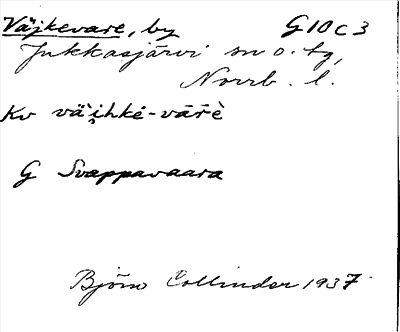 Väjkevare, by G10c3
Jukkasjärvi sn o. tg,
Norrb. l.
Kv väi̯hkē-vārè
G Svappavaara
Björn Collinder 1937